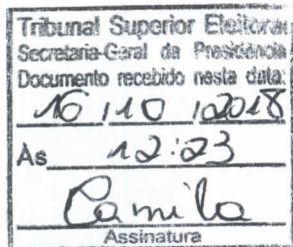 Tribunal Superior Eleitoral
Secretaria-Geral da Presidência
Documento recebido nesta data:
16 / 10 / 2018
Às 12:23
Camila
Assinatura